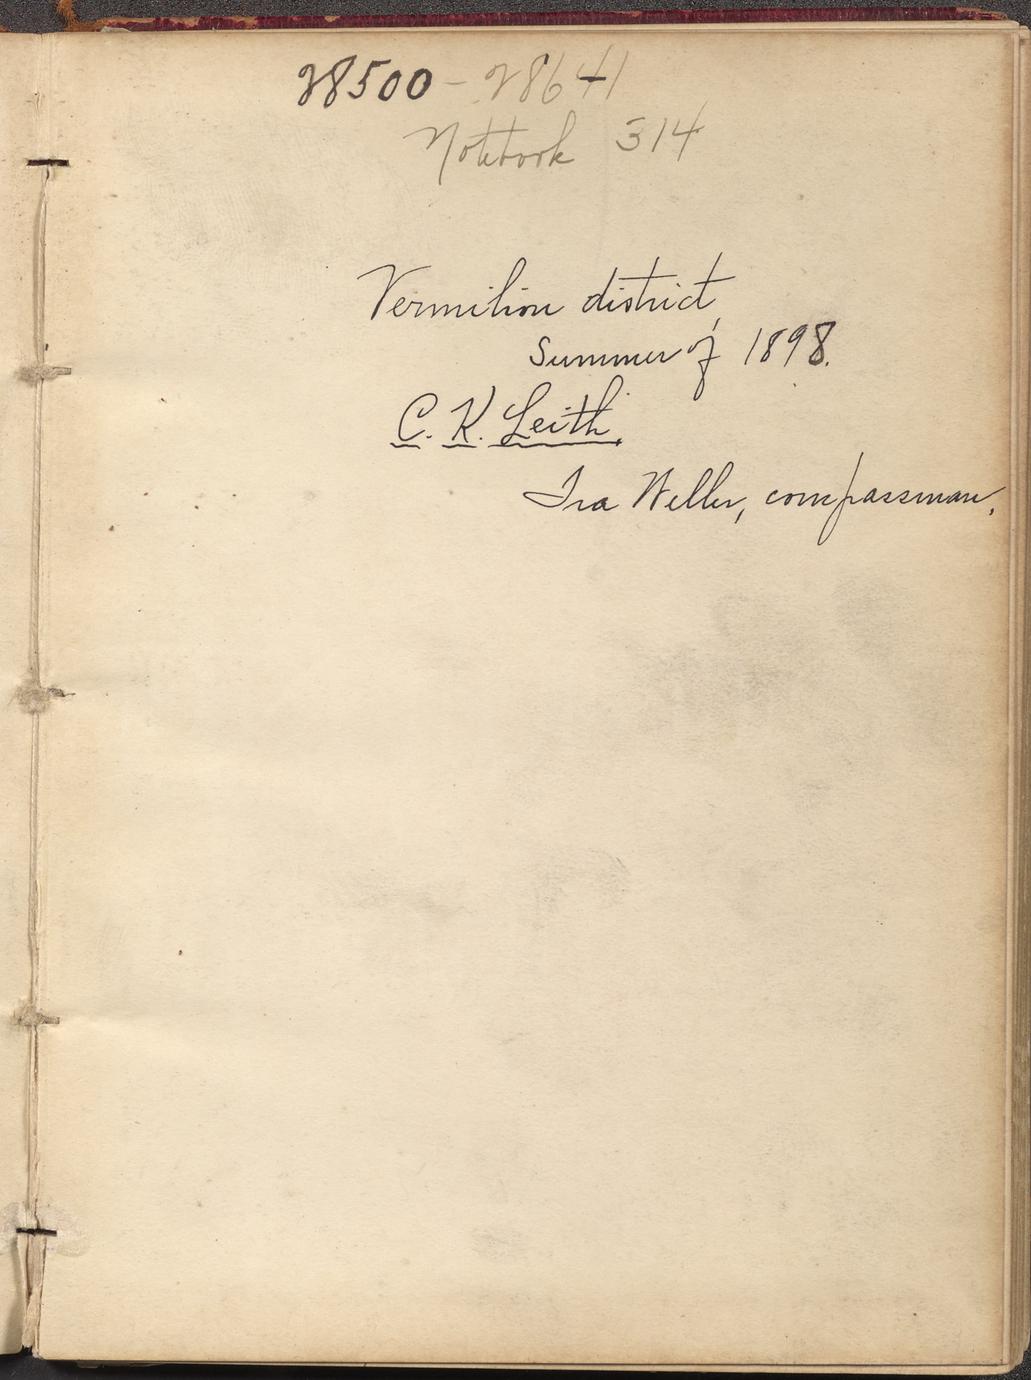 28500 - 28641
Notebook 314
Vermilion district,
Summer of 1898.
C. K. Leith.
Ira Weller, compassman.